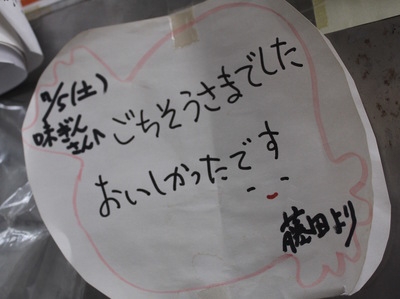 7/5(土)
味ぎん
さんへ
ごちそうさまでした
おいしかったです
藤田より